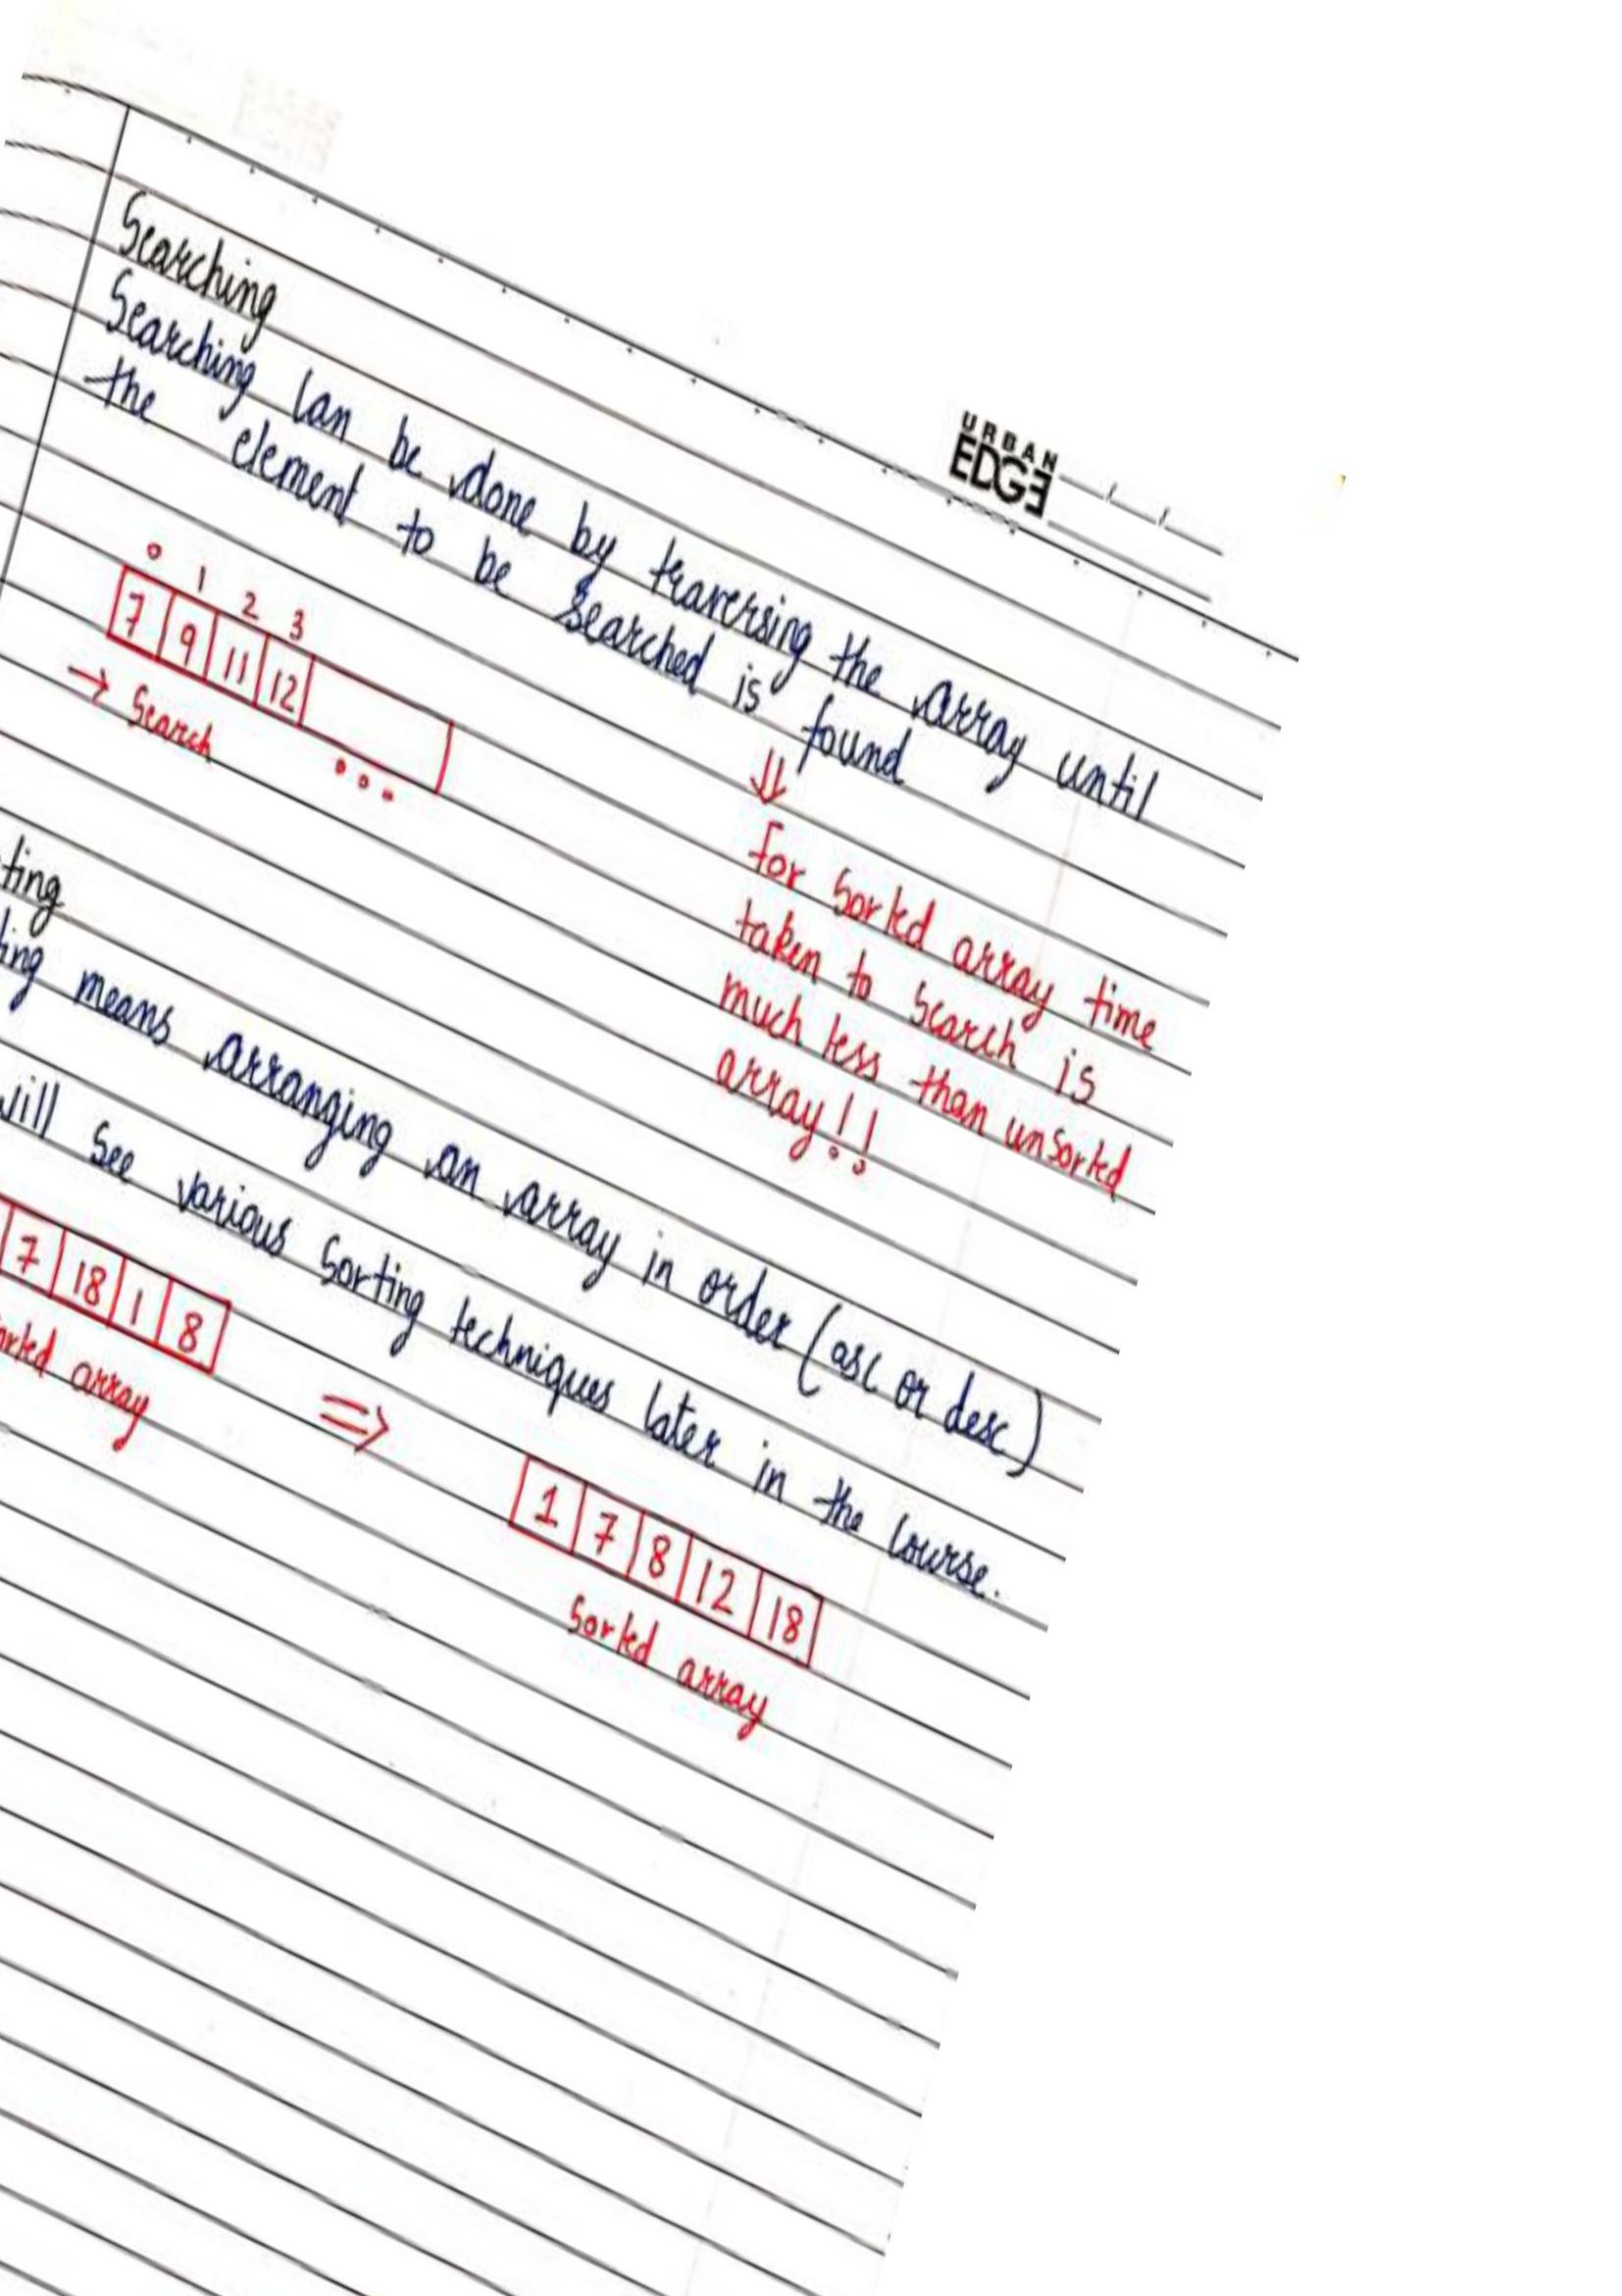 URBAN
EDGE
Searching
Searching can be done by traversing the array until
the element to be searched is found
0 1 2 3
7 9 11 12
→ Search ...
⇓
for sorted array time
taken to search is
much less than unsorted
array!!
ting
ting means arranging an array in order (asc or desc)
will see various sorting techniques later in the course.
7 18 1 8
orted array
⇒
1 7 8 12 18
Sorted array